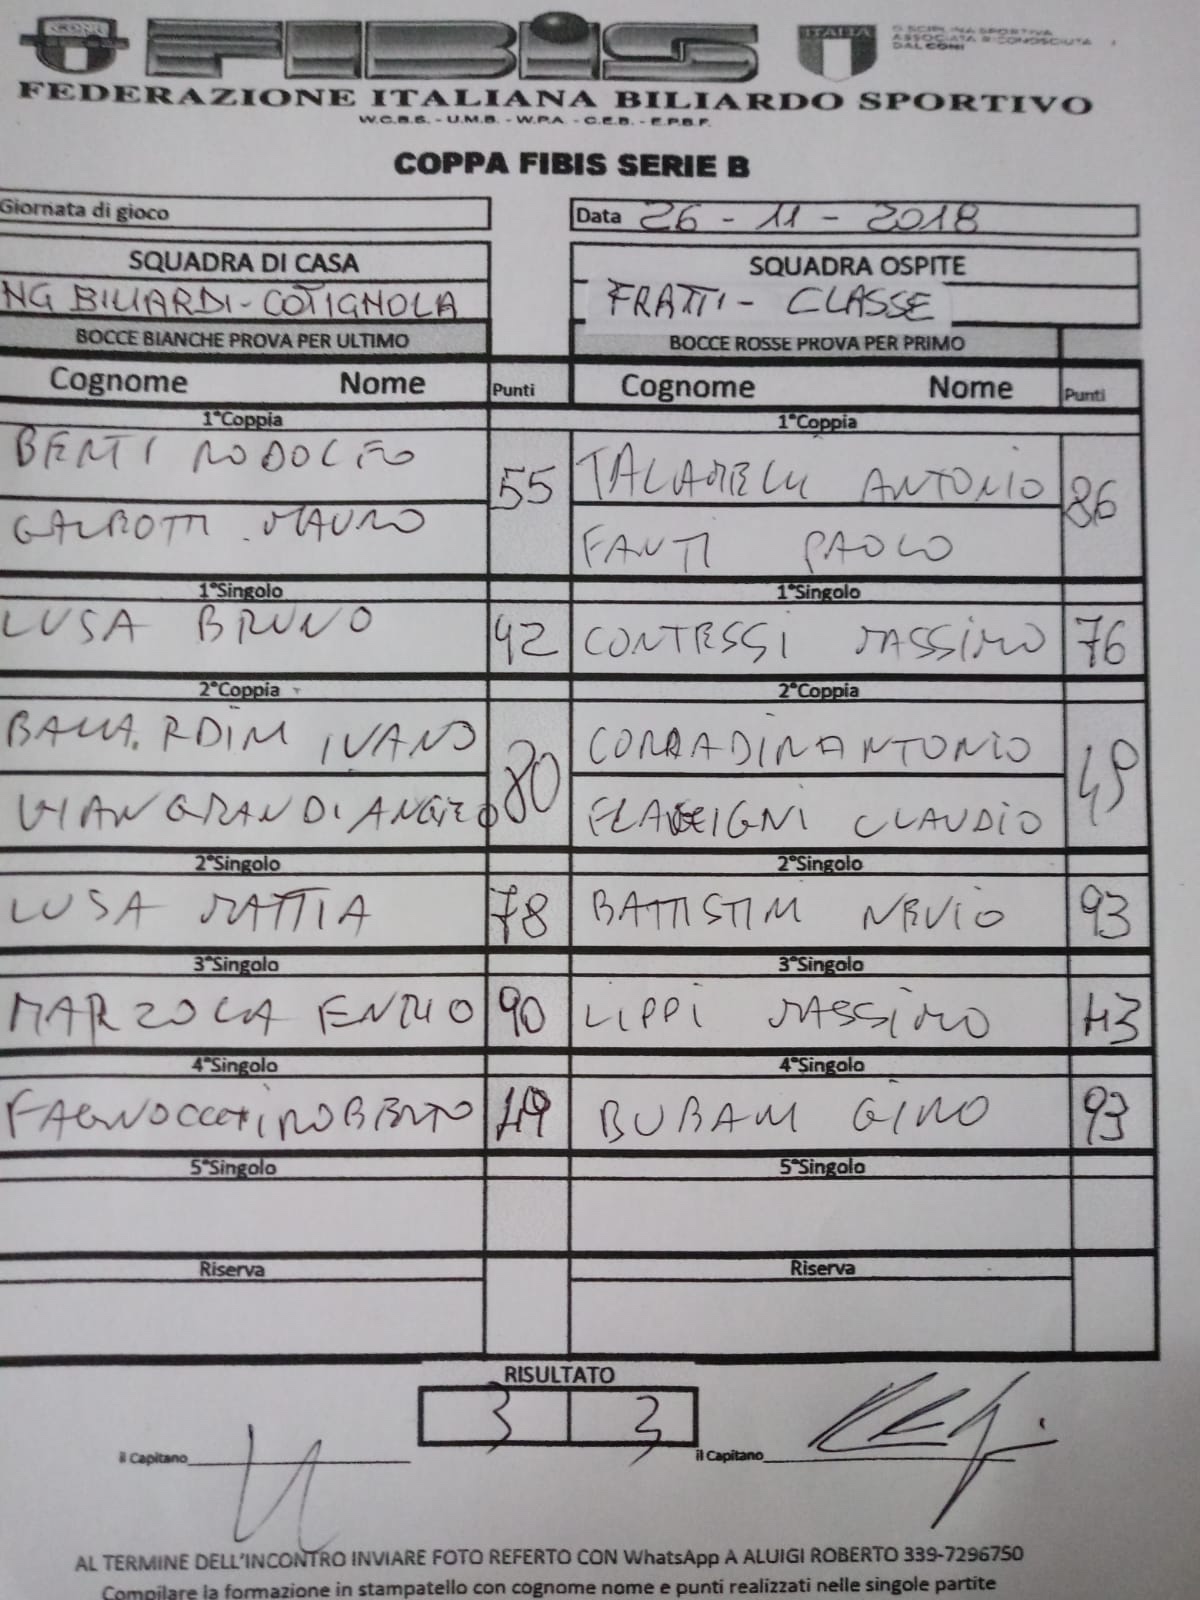 CONI FIBIS ITALIA DISCIPLINA SPORTIVA
ASSOCIATA RICONOSCIUTA
DAL CONI
FEDERAZIONE ITALIANA BILIARDO SPORTIVO
W.C.B.S. - U.M.B. - W.P.A. - C.E.B. - E.P.B.F.
COPPA FIBIS SERIE B
Giornata di gioco Data 26 - 11 - 2018
SQUADRA DI CASA SQUADRA OSPITE
NG BILIARDI - COTIGNOLA FRATTI - CLASSE
BOCCE BIANCHE PROVA PER ULTIMO BOCCE ROSSE PROVA PER PRIMO
Cognome Nome Punti Cognome Nome Punti
1°Coppia 1°Coppia
BERTI RODOLFO 55 TALAMELLI ANTONIO 86
GALEOTTI MAURO FANTI PAOLO
1°Singolo 1°Singolo
LUSA BRUNO 92 CONTESSI MASSIMO 76
2°Coppia 2°Coppia
BALLARDINI IVANO 80 CORRADIN ANTONIO 49
GIANGRANDI ANGELO CLAUDIO
2°Singolo 2°Singolo
LUSA MATTIA 78 BATTISTINI NEVIO 93
3°Singolo 3°Singolo
MARZOLA ENRICO 90 LIPPI MASSIMO 43
4°Singolo 4°Singolo
FAGNOCCHI ROBERTO 49 BUBANI GINO 93
5°Singolo 5°Singolo
Riserva Riserva
RISULTATO
3 3
il Capitano il Capitano
AL TERMINE DELL'INCONTRO INVIARE FOTO REFERTO CON WhatsApp A ALUIGI ROBERTO 339-7296750
Compilare la formazione in stampatello con cognome nome e punti realizzati nelle singole partite